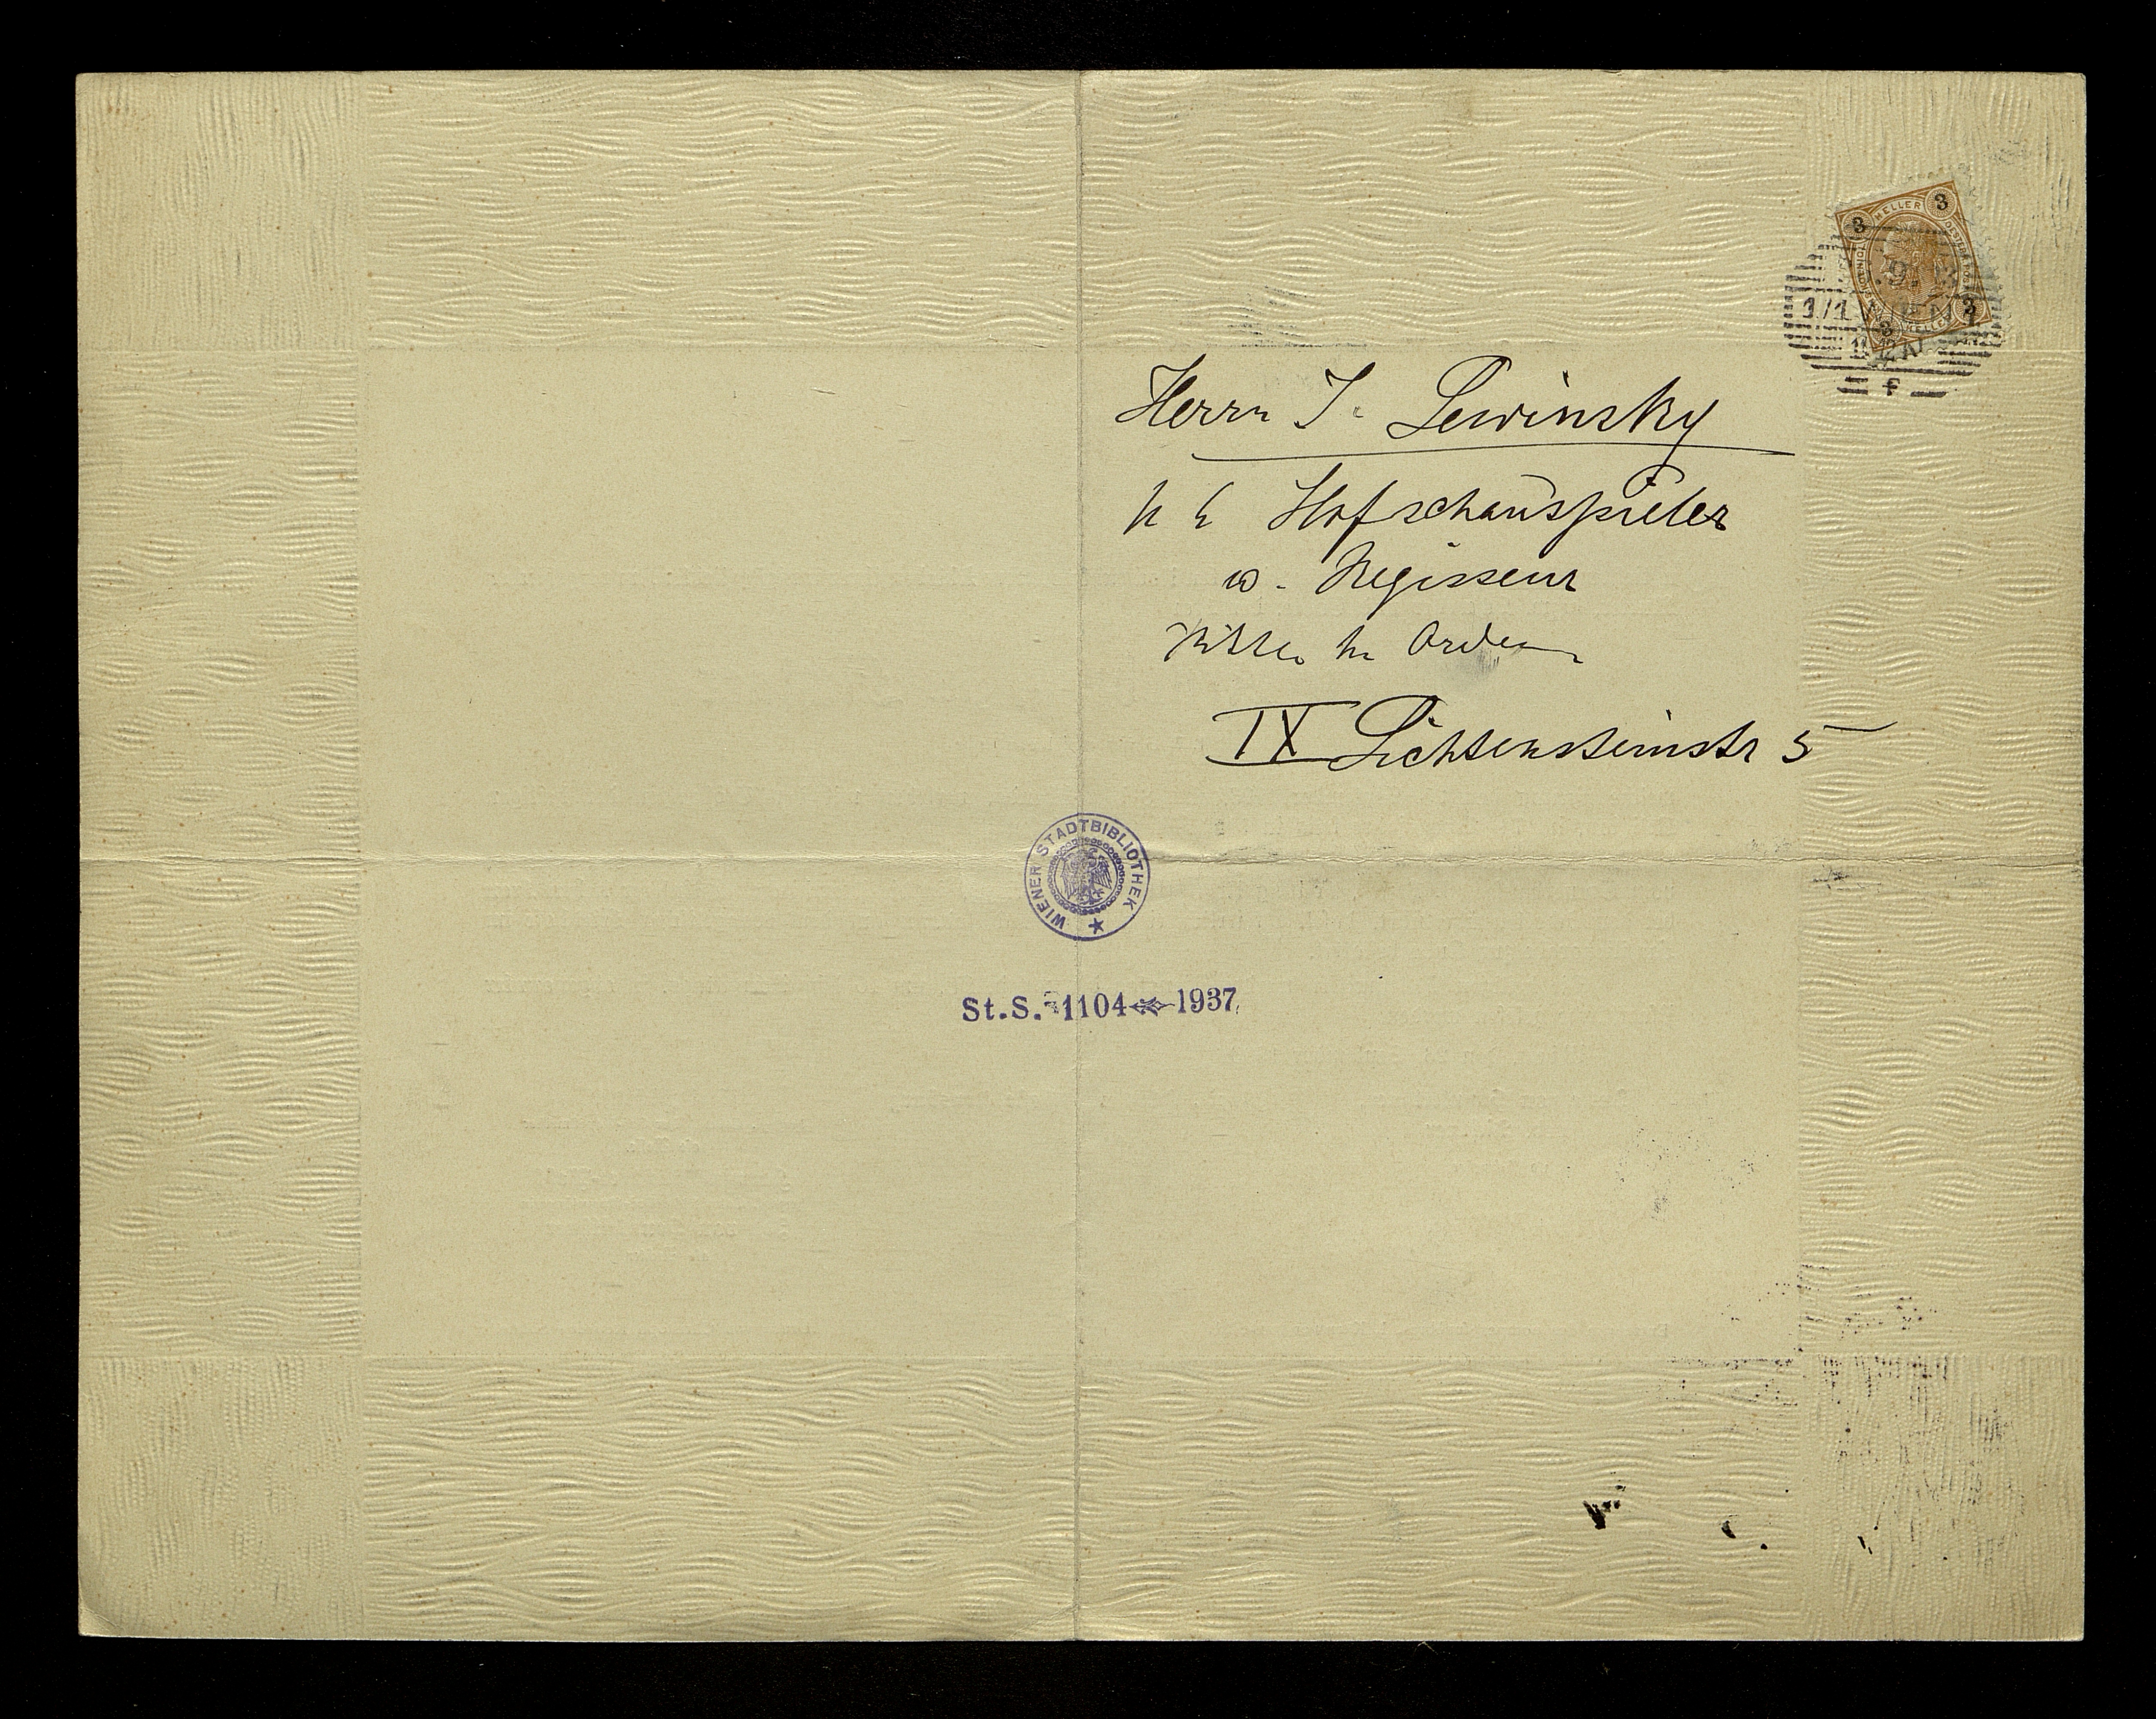 3 HELLER 3
1/1 WIEN 1
f
Herrn J. Lewinsky
k k Hofschauspieler
u. Regisseur
Ritter h. Orden
IX Lichtensteinstr 5
WIENER STADTBIBLIOTHEK
St.S. 1104 1937